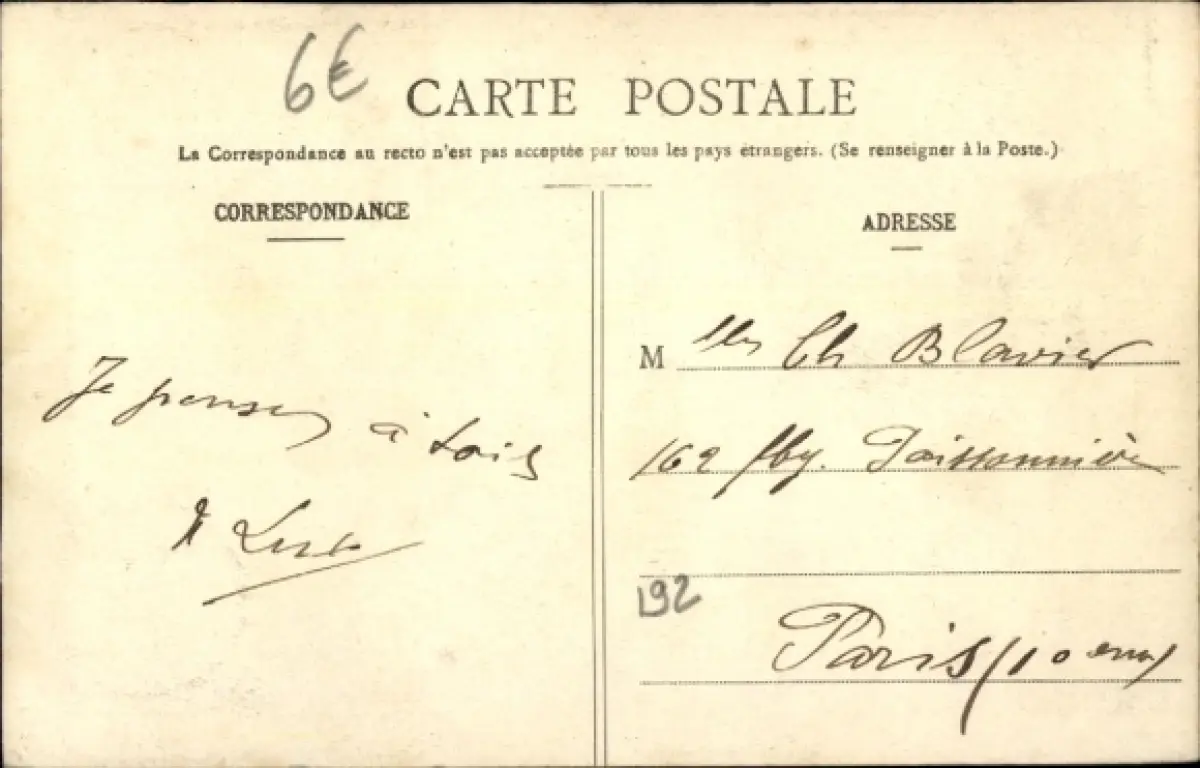 6€
CARTE POSTALE
La Correspondance au recto n'est pas acceptée par tous les pays étrangers. (Se renseigner à la Poste.)
CORRESPONDANCE
ADRESSE
Je pense
à toi
M lle Ch Blavier
162 fbg. Poissonnière
192
Paris (10 eme)